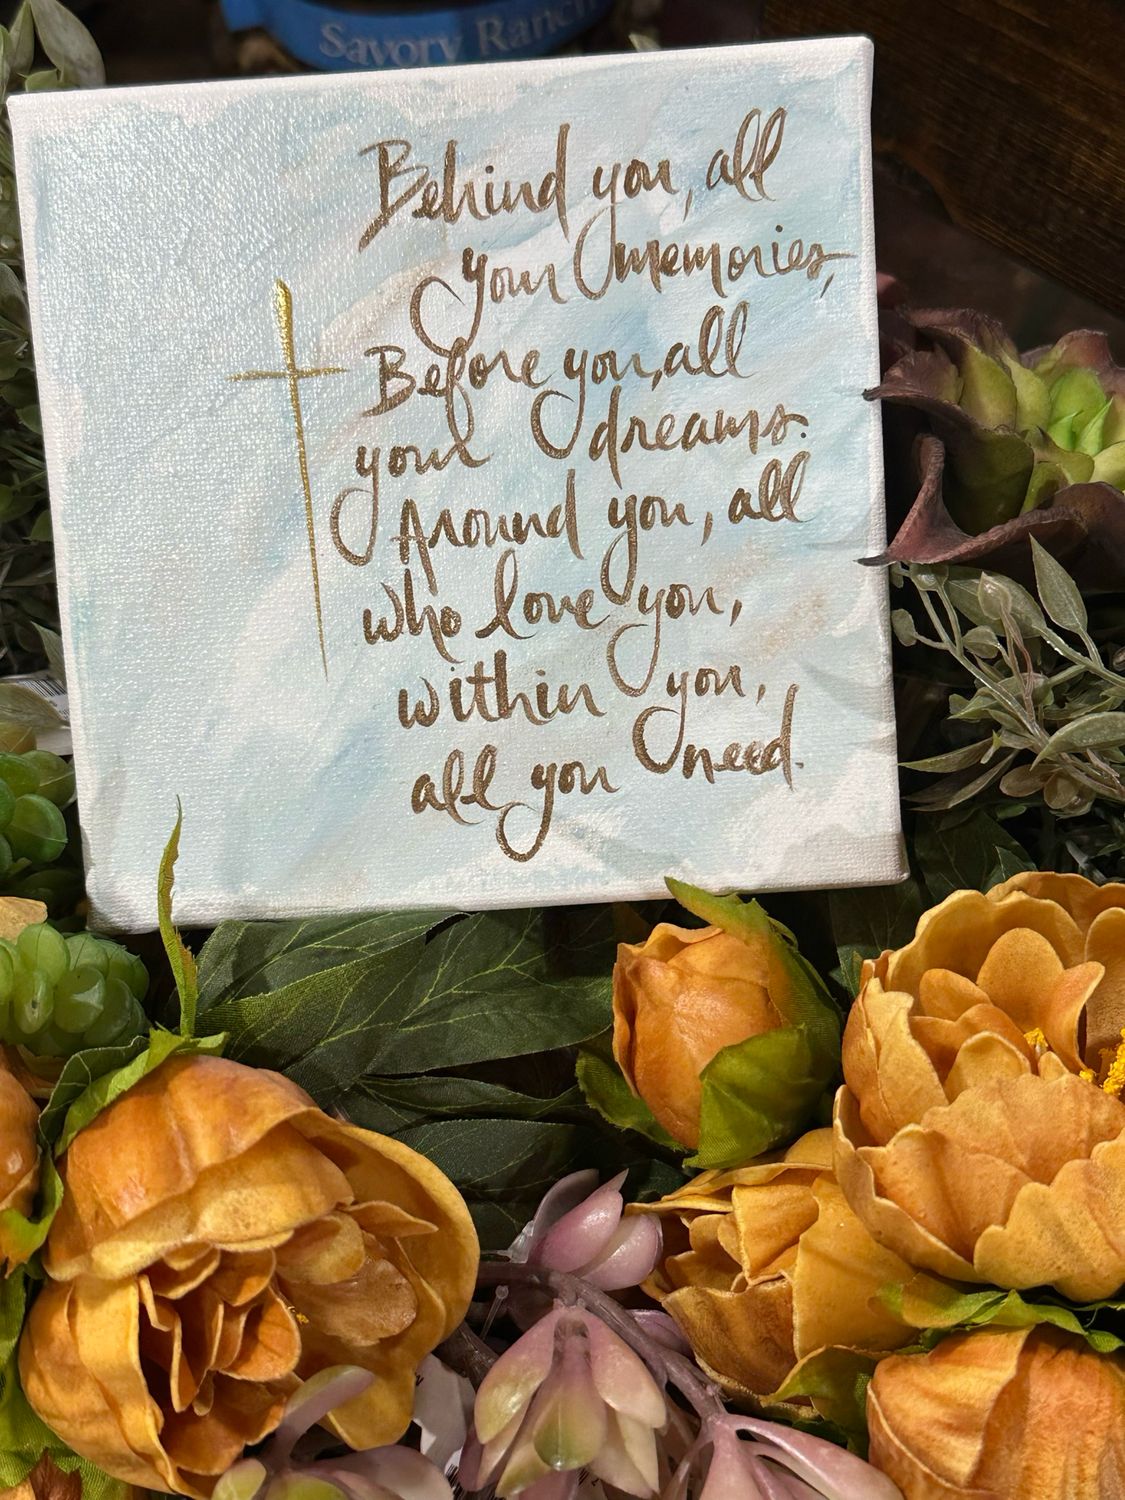 Savory Ranch
Behind you, all
your memories,
Before you, all
your dreams.
Around you, all
who love you,
within you,
all you need.